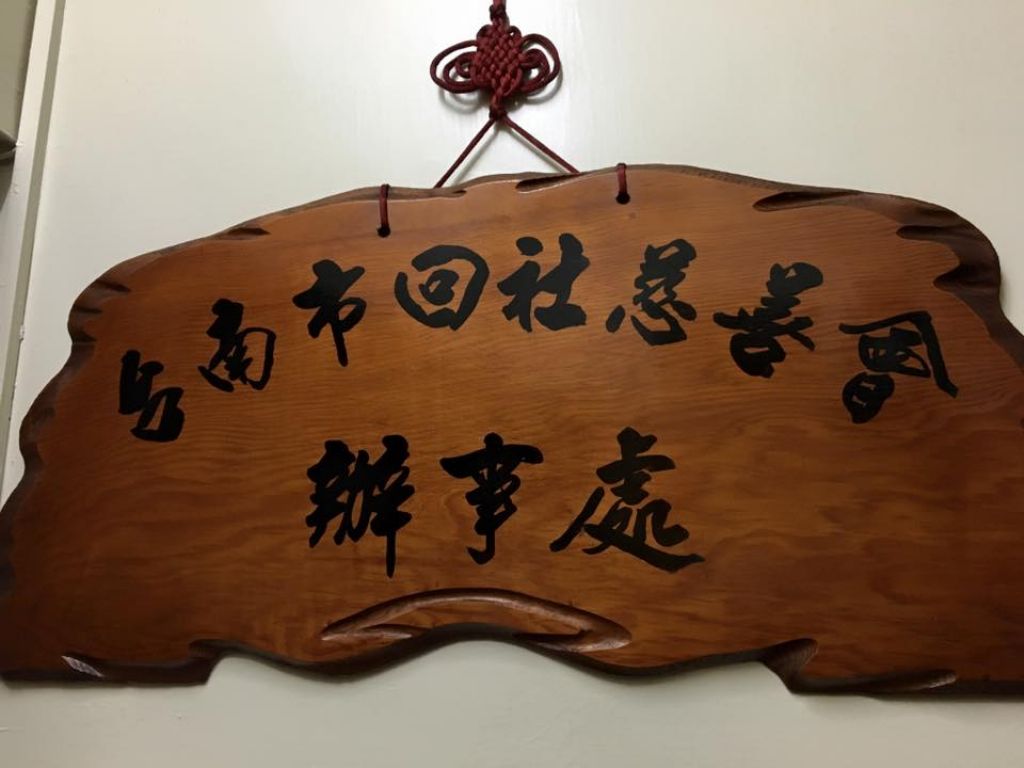 台南市回社慈善會
辦事處